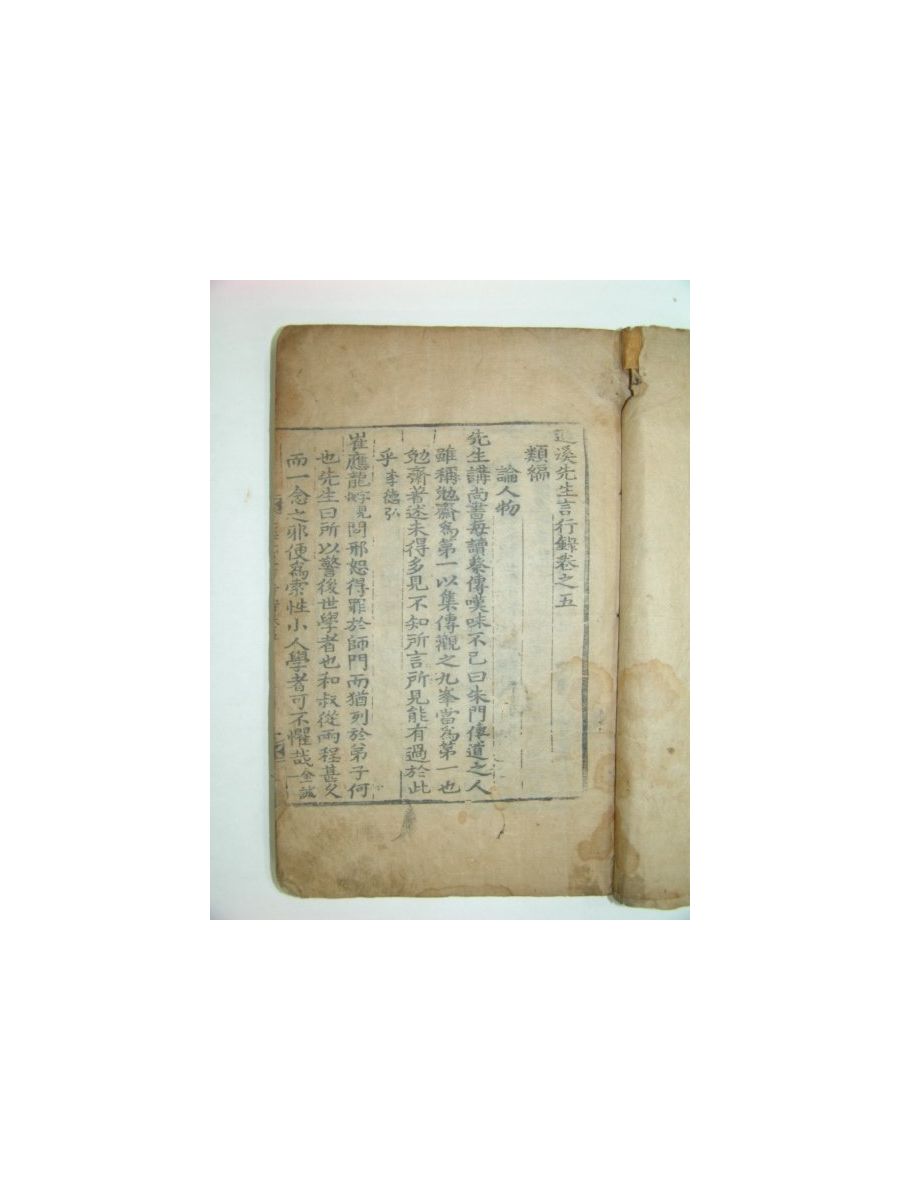 退溪先生言行錄卷之五
類編
論人物
先生講尚書每讀蔡傳嘆味不已曰朱門傳道之人
雖稱勉齋爲第一以集傳觀之九峯當爲第一也
勉齋著述未得多見不知所言所見能有過於此
乎 李德弘
崔應龍見問邢恕得罪於師門而猶列於弟子何
也先生曰所以警後世學者也和叔從兩程甚久
而一念之邪便爲索性小人學者可不懼哉 金誠一